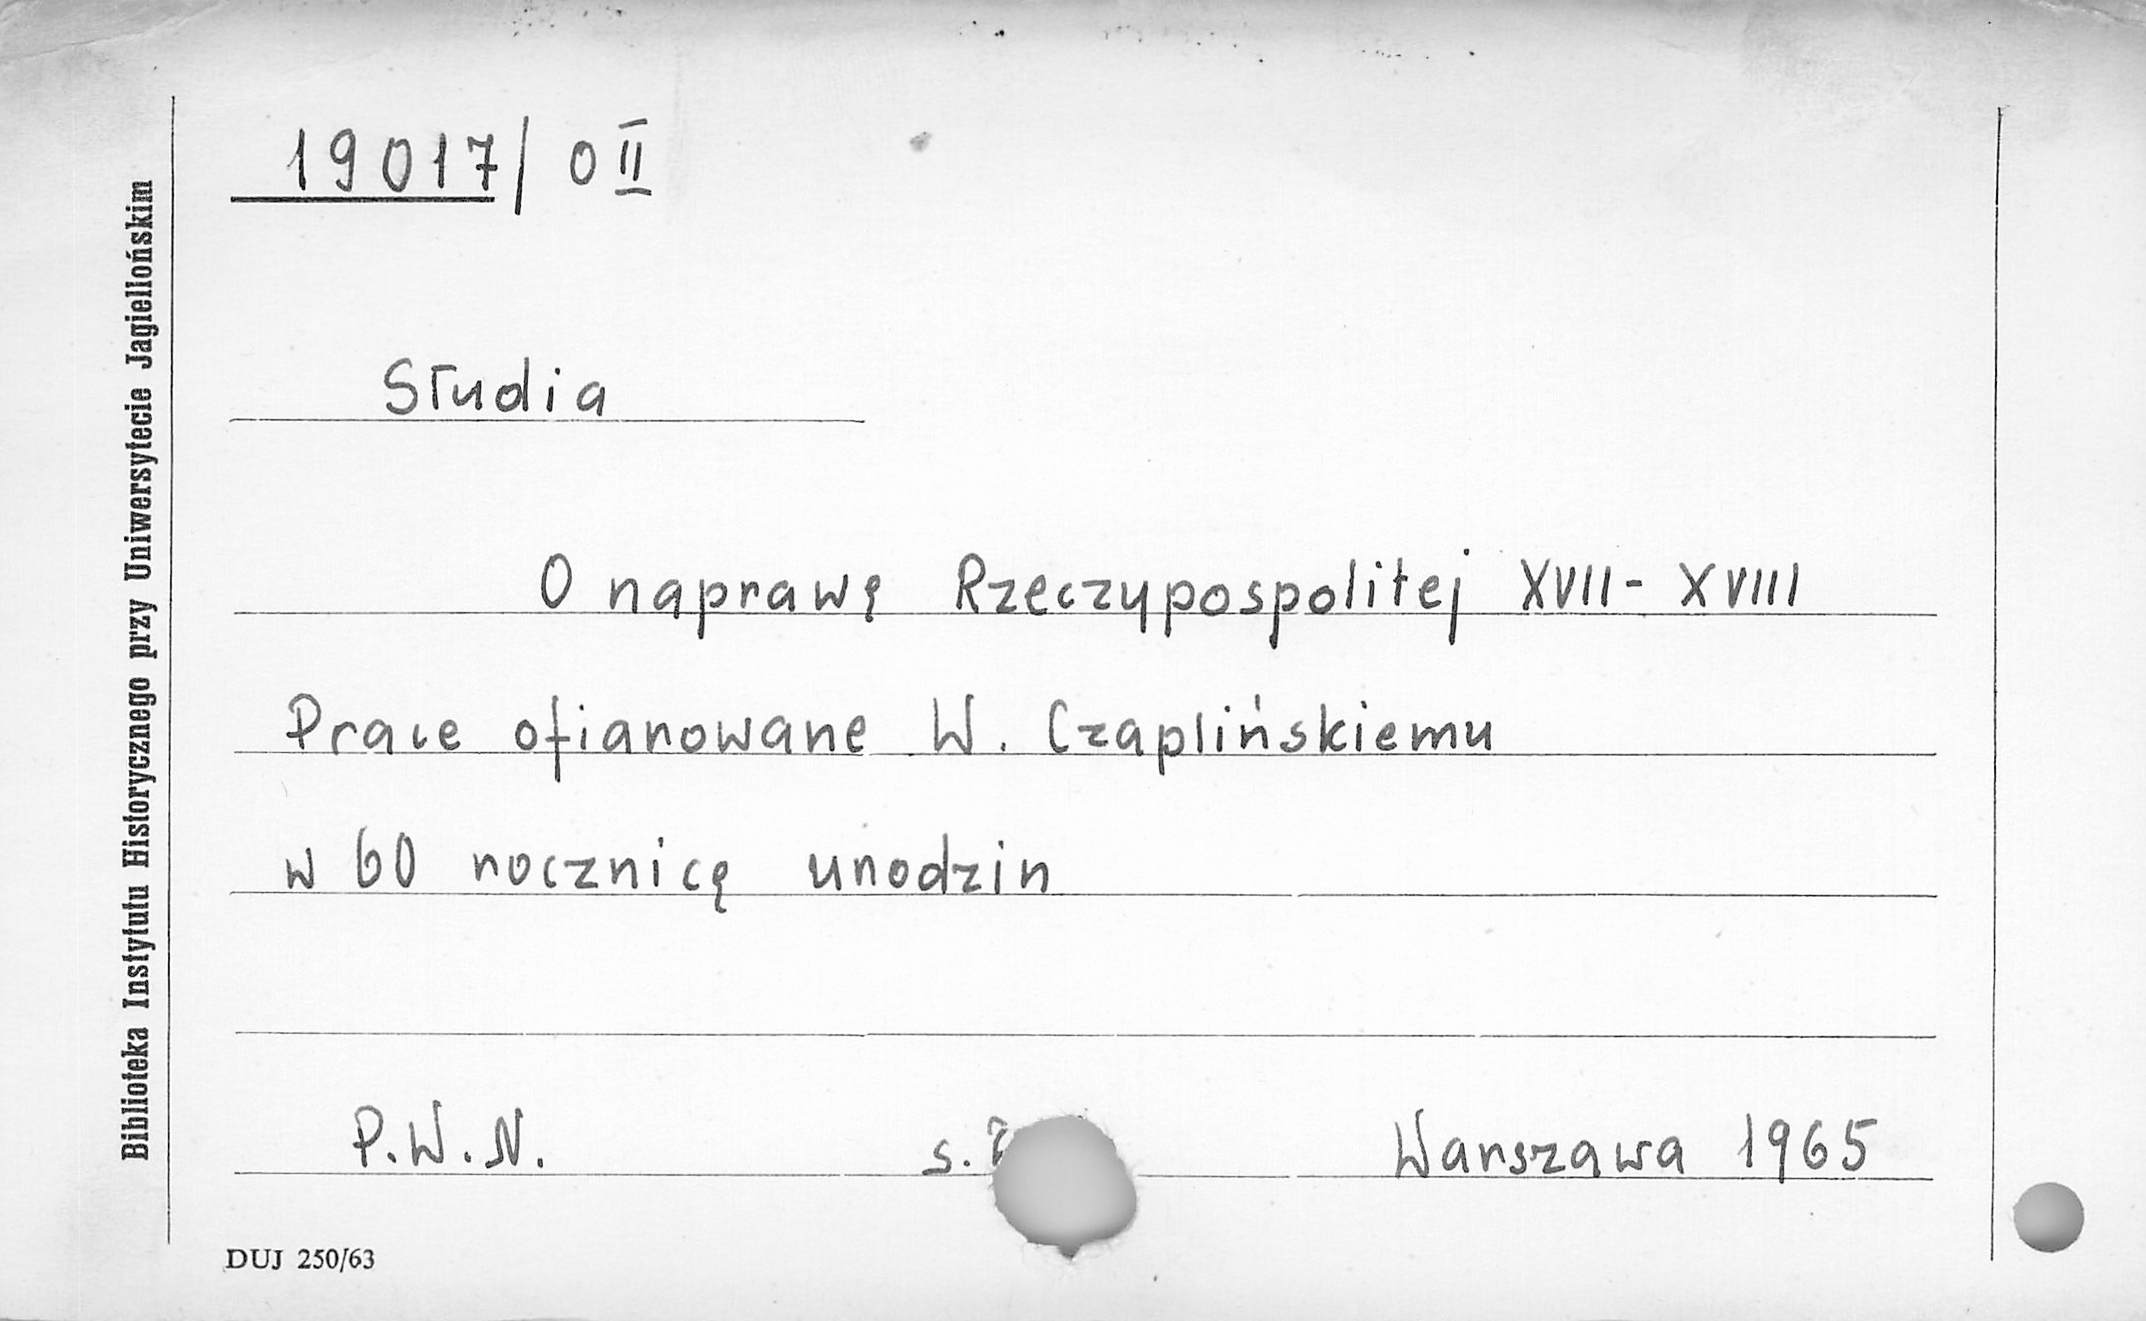 19017/ O II
Studia
O naprawę Rzeczypospolitej XVII - XVIII
Prace ofiarowane W. Czaplińskiemu
w 60 rocznicę urodzin
P.W.N. s. Warszawa 1965
DUJ 250/63
Biblioteka Instytutu Historycznego przy Uniwersytecie Jagiellońskim